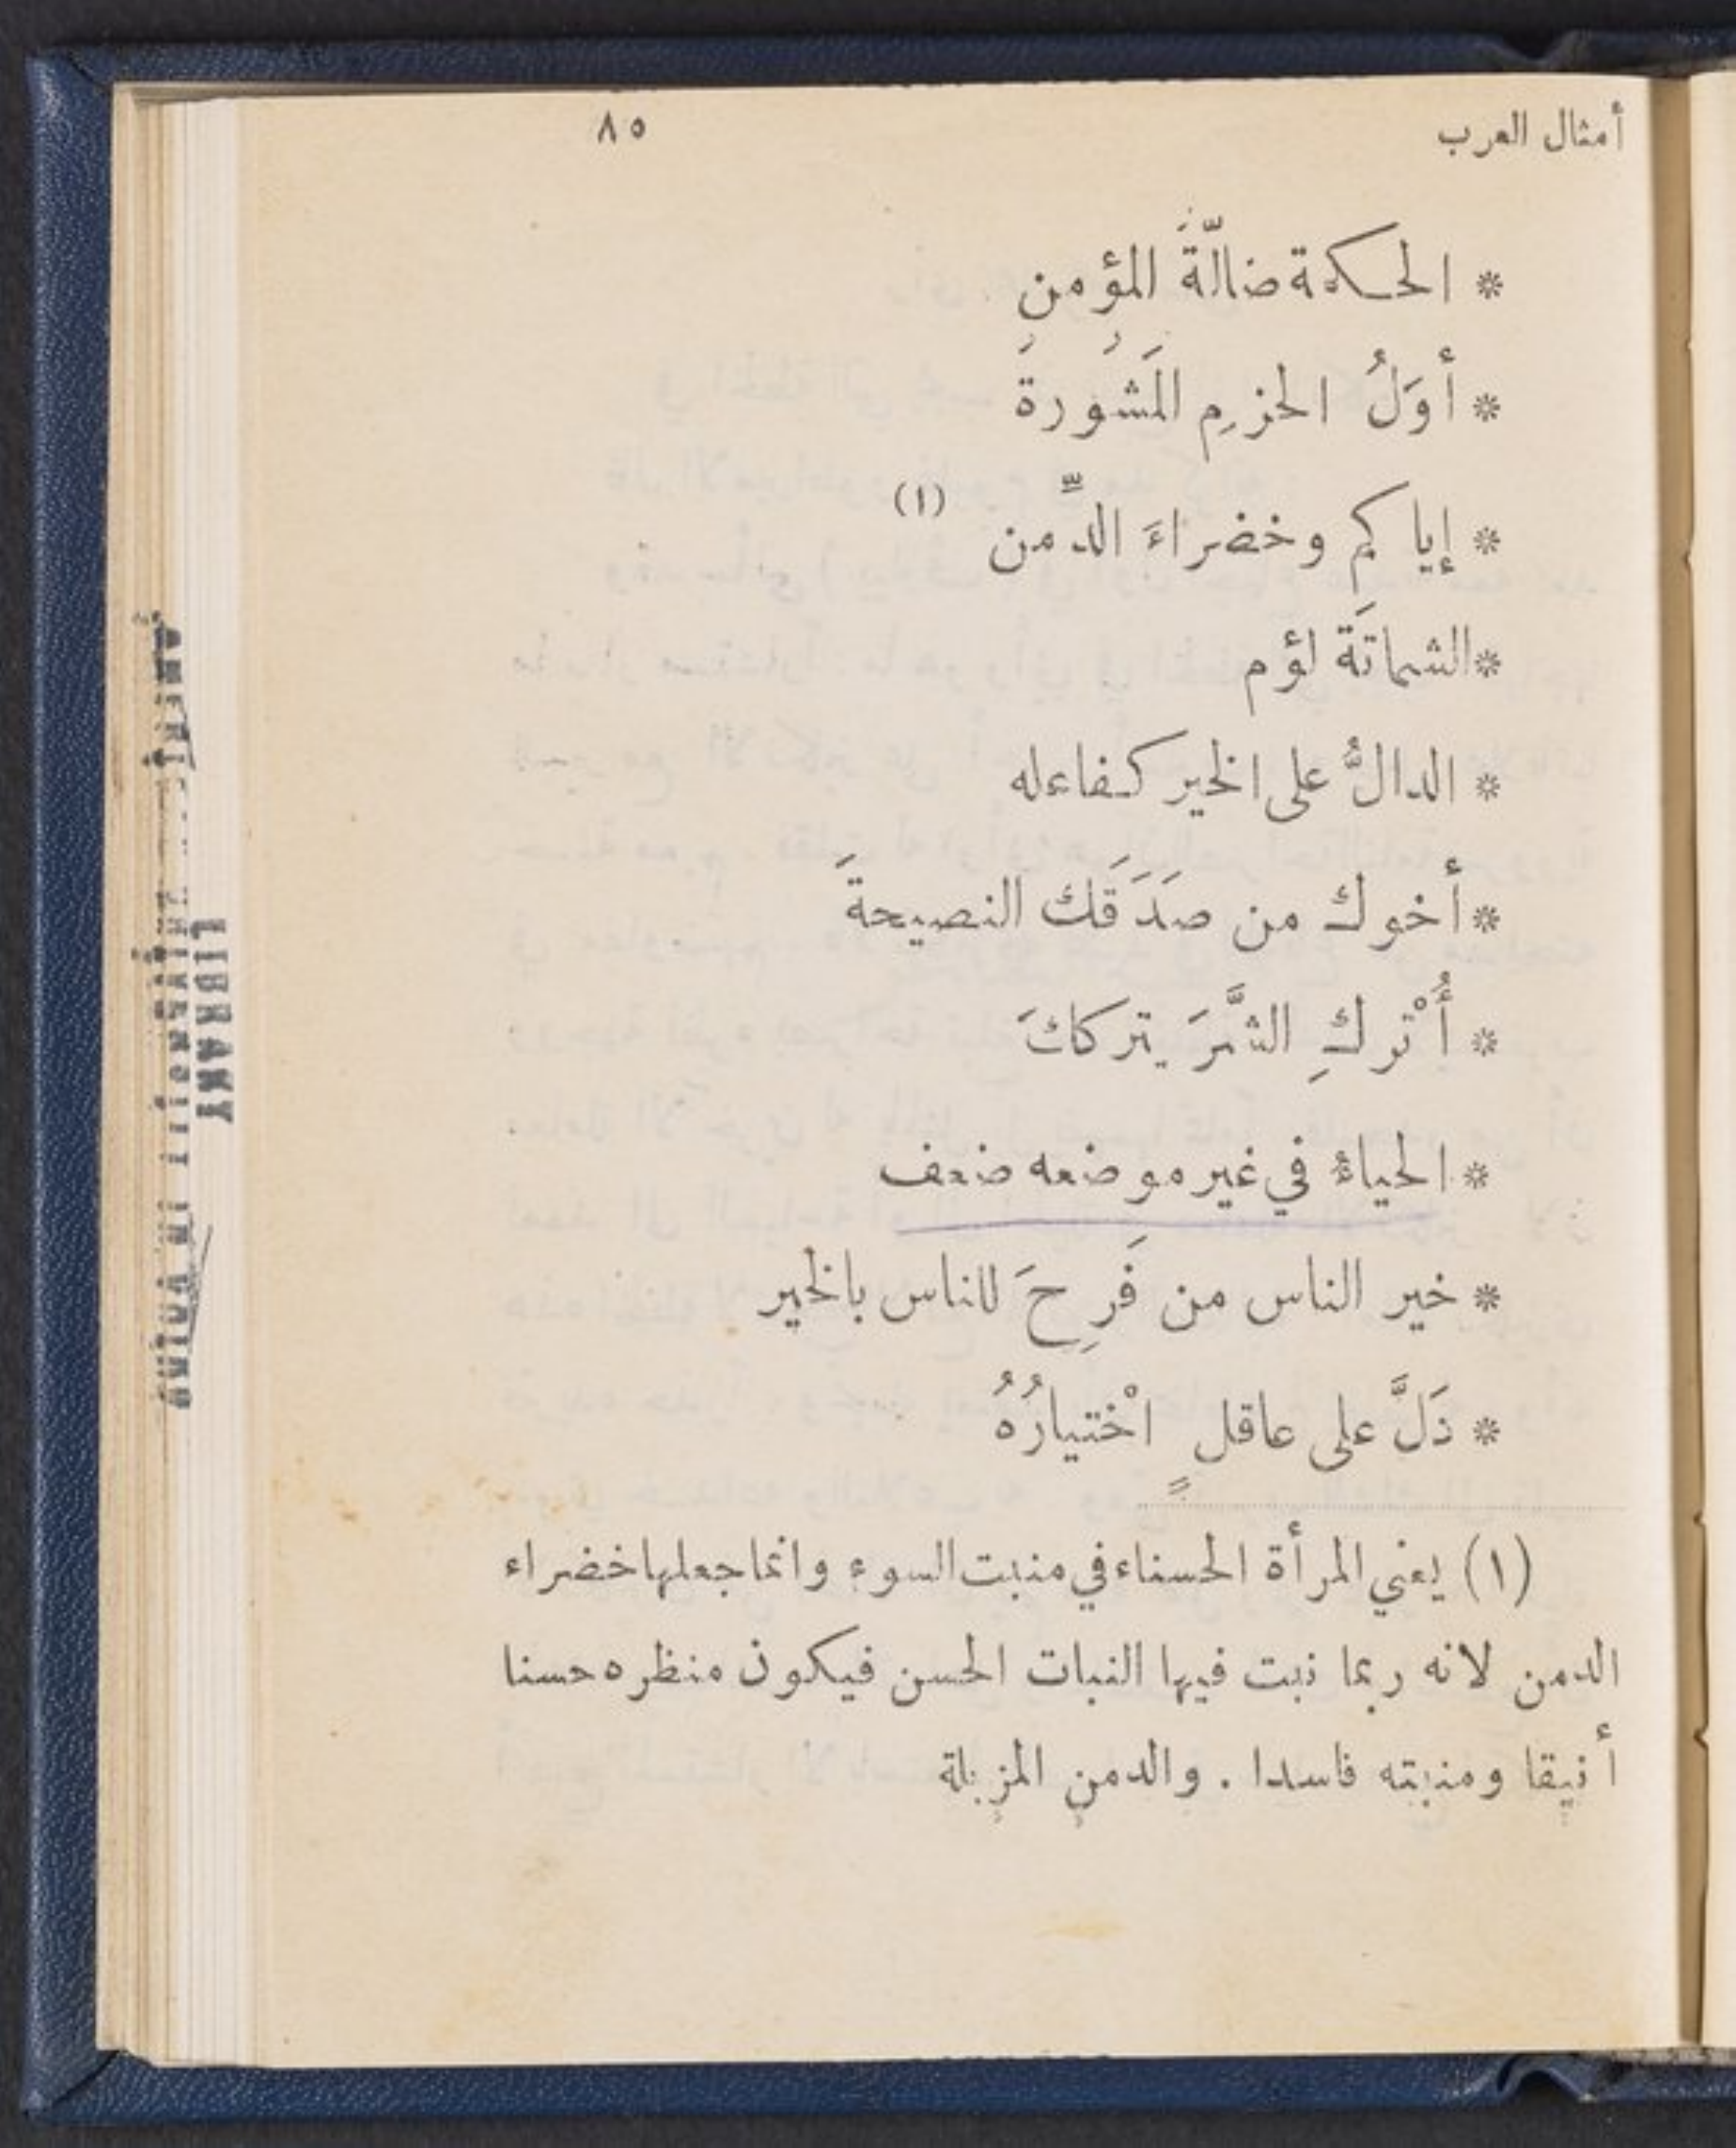 أمثال العرب ٨٥
* الحكمة ضالّةُ المؤمن
* أوَلُ الحزمِ المَشُورَة
* إياكم وخضراءَ الدِّمن (١)
* الشماتَة لؤم
* الدالُّ على الخير كفاعله
* أخوك من صَدَقَك النصيحةَ
* أُتْركِ الشَّرَ يترككَ
* الحياءُ في غير موضعه ضعف
* خير الناس من فَرِحَ للناس بالخير
* دَلَّ على عاقلٍ اخْتيارُهُ
(١) يعني المرأة الحسناء في منبت السوء وانما جعلها خضراء
الدمن لانه ربما نبت فيها النبات الحسن فيكون منظره حسنا
أنيقا ومنبته فاسدا . والدمن المزبلة
LIBRARY